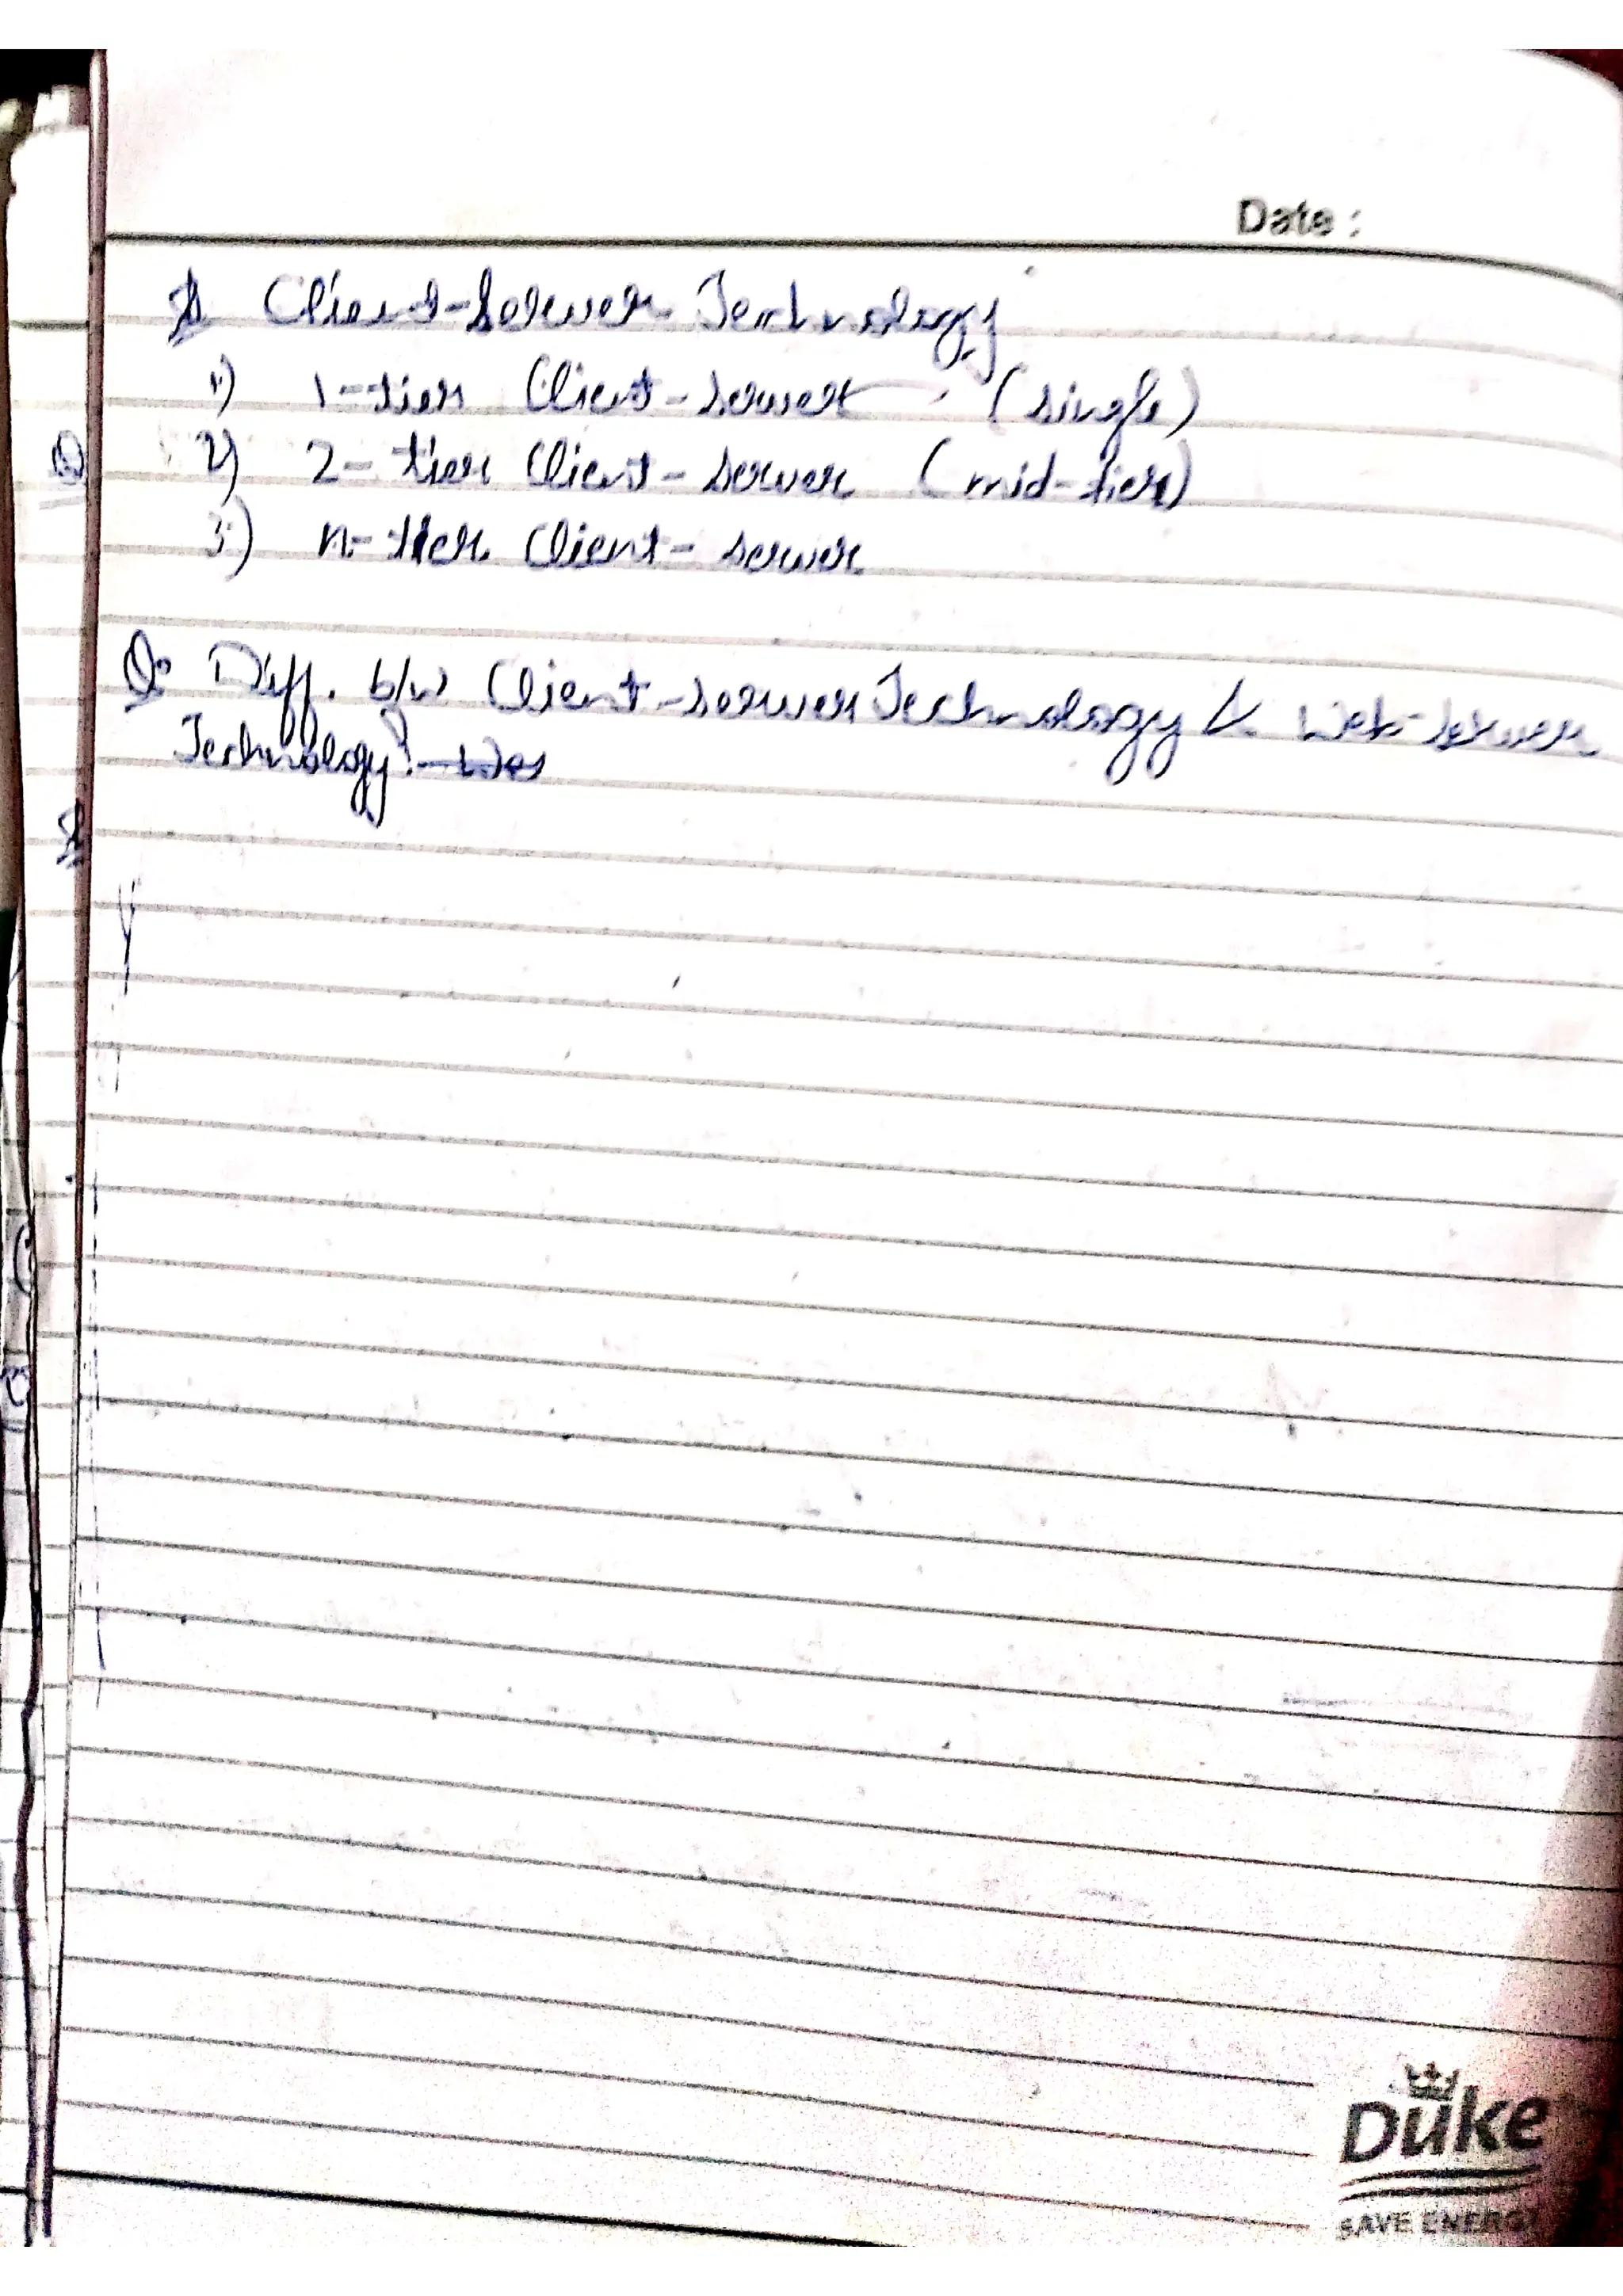 Date :
Client-Server Technology
1) 1-tier Client-server (single)
2) 2-tier Client-server (mid-tier)
3) n-tier Client-server
Q. Diff. b/w Client-server Technology & Web-server
Technology?
Duke
SAVE ENERGY